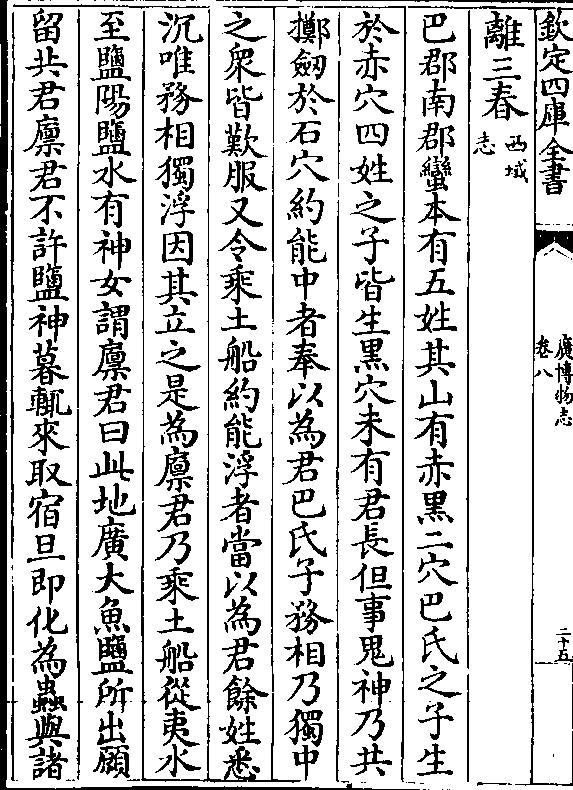 欽定四庫全書
廣博物志
卷八
二十五
離三春西域志
巴郡南郡蠻本有五姓其山有赤黑二穴巴氏之子生
於赤穴四姓之子皆生黑穴未有君長但事鬼神乃共
擲劔於石穴約能中者奉以為君巴氏子務相乃獨中
之衆皆歎服又令乘土船約能浮者當以為君餘姓悉
沉唯務相獨浮因共立之是為廩君乃乘土船從夷水
至鹽陽鹽水有神女謂廩君曰此地廣大魚鹽所出願
留共君廩君不許鹽神暮輒來取宿旦即化為蟲與諸